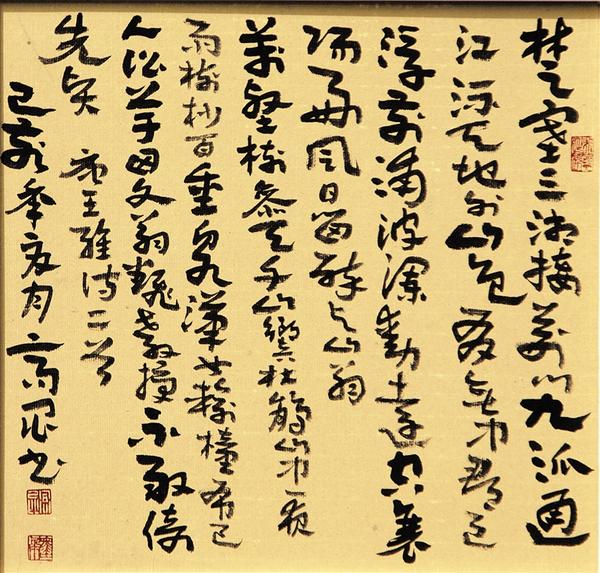 楚塞三湘接荆门九派通
江流天地外山色有無中郡邑
浮前浦波澜動遠空襄
陽好風日留醉與山翁
萬壑樹参天千山響杜鹃山中一夜
雨樹杪百重泉漢女輸橦布巴
人讼芋田文翁翻教授不敢倚
先贤 王維诗二首
己年夏月书